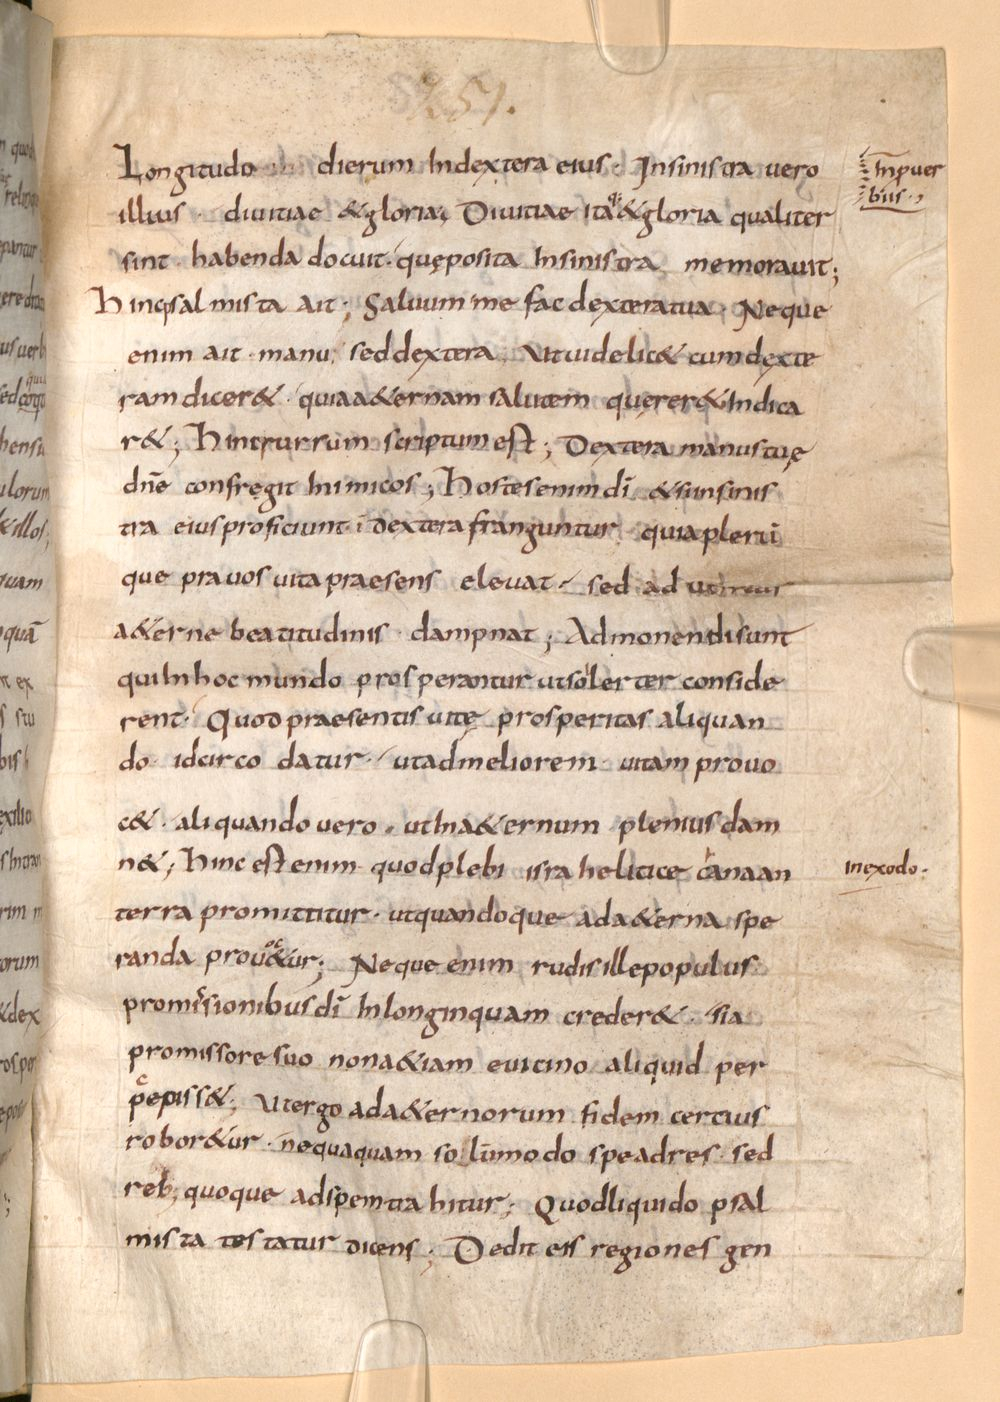 251.
Longitudo dierum Indextera eius · Insinistra vero
Inpuer
biis ·,
illius · diuitiae &gloria; Diuitiae itaq; &gloria qualiter
sint · habenda docuit · quęposita Insinistra memorauit;
hincpsalmista ait; Saluum me fac dexteratua · Neque
enim ait · manu, sed dextera, Utuidelic& cum dexte
ram dicer& · quia a&ernam salutem quęrer& Indica
r&; hinc rursum scriptum est; Dextera manus tuę
dn̄e confregit Inimicos; hostes enim dī &si insinis
tra eius proficiunt ı̄ dextera franguntur · quia plerū
que prauos uita praesens eleuat · sed ad uentus
a&erne beatitudinis · dampnat; Admonendi sunt
qui In hoc mundo prosperantur ut solerter conside
rent · Quod praesentis uitę prosperitas aliquan
do · idcirco datur · utad meliorem uitam prouo
c& · aliquando vero · ut In a&ernum plenius dam
n&; hinc est enim quod plebi israhelitice canaan
inexodo ·
terra promittitur · ut quandoque ad a&erna spe
randa prouoc&ur; Neque enim rudis ille populus
promissionibus dī In longinquam creder& · si a
promissore suo non a&iam e uicino aliquid per
cepiss&; Ut ergo ad a&ernorum fidem certius
robor&ur · nequaquam solūmodo spe ad res · sed
reb; quoque ad spem trahitur; Quod liquido psal
mista testatur dicens; Dedit eis regiones gen